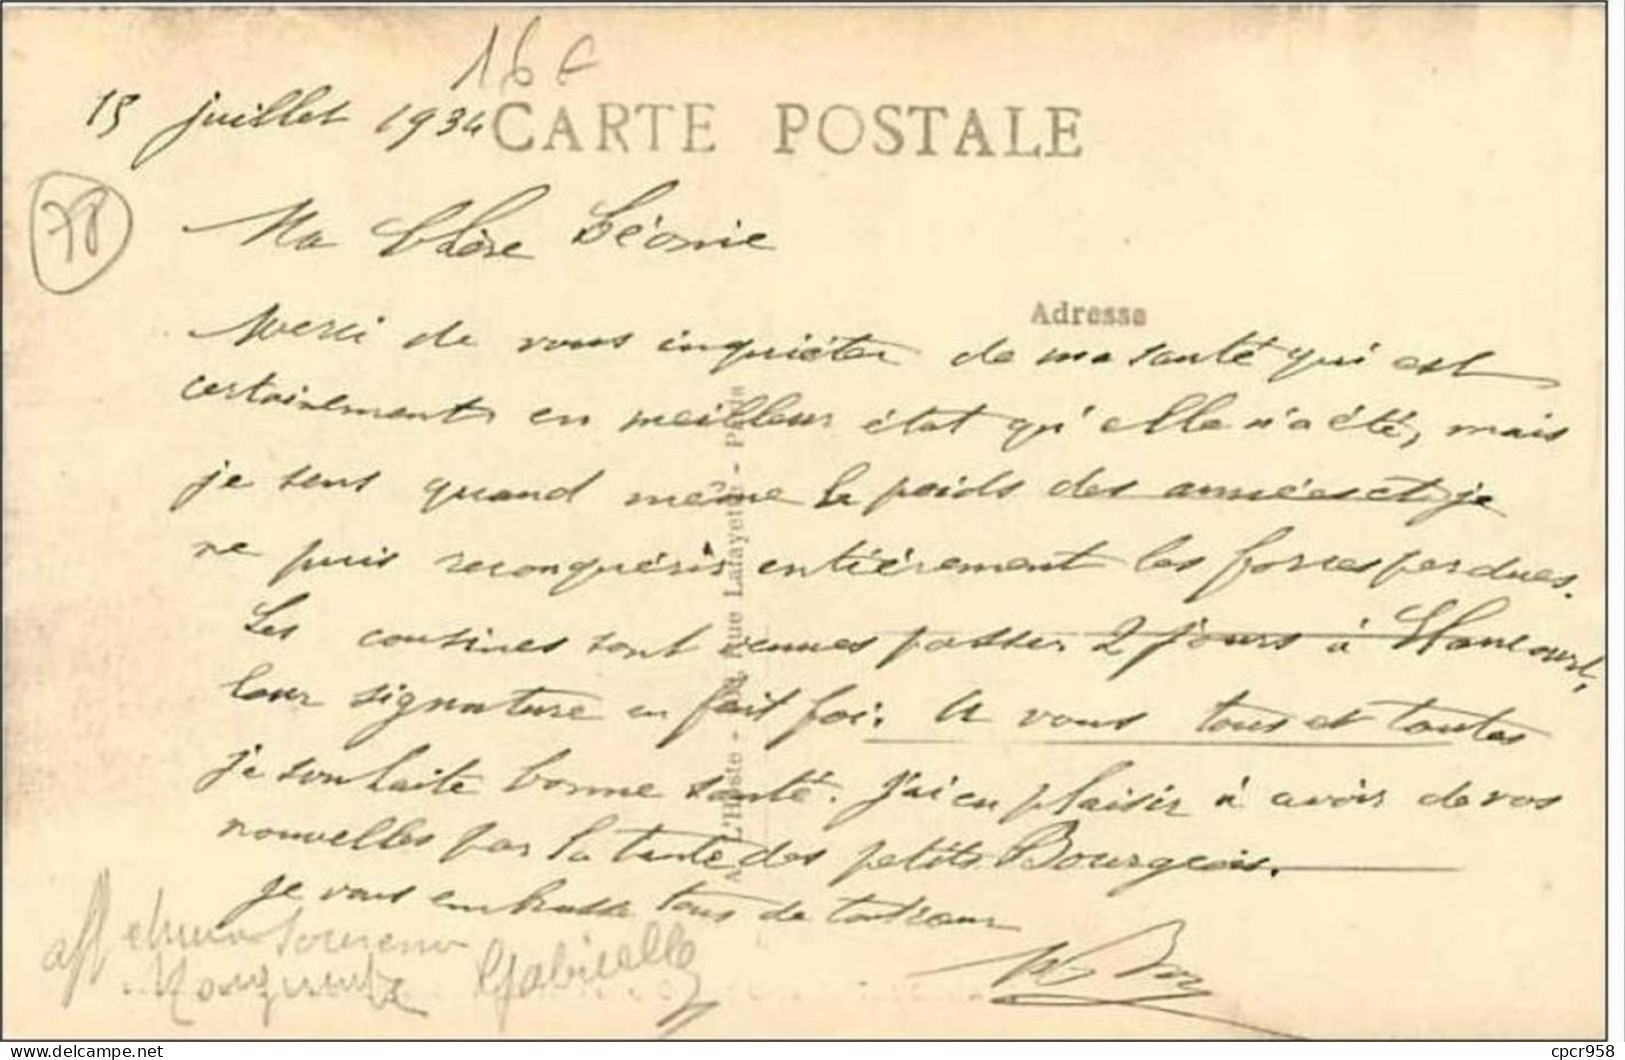 16 €
15 juillet 1934
CARTE POSTALE
78
Ma Chère Léonie
Adresse
Merci de vous inquiéter de ma santé qui est
certainement en meilleur état qu'elle n'a été, mais
je sens quand même le poids des années et je
ne puis reconquérir entièrement les forces perdues.
Les cousines sont venues passer 2 jours à Elancourt,
leur signature en fait foi. A vous tous et toutes
je souhaite bonne santé. J'ai eu plaisir à avoir de vos
nouvelles par la tante des petits Bourgeois.
je vous embrasse tous de tout cœur
aff souvenir
Marguerite Gabrielle
L'H - Rue Lafayette - Paris
cpcr958